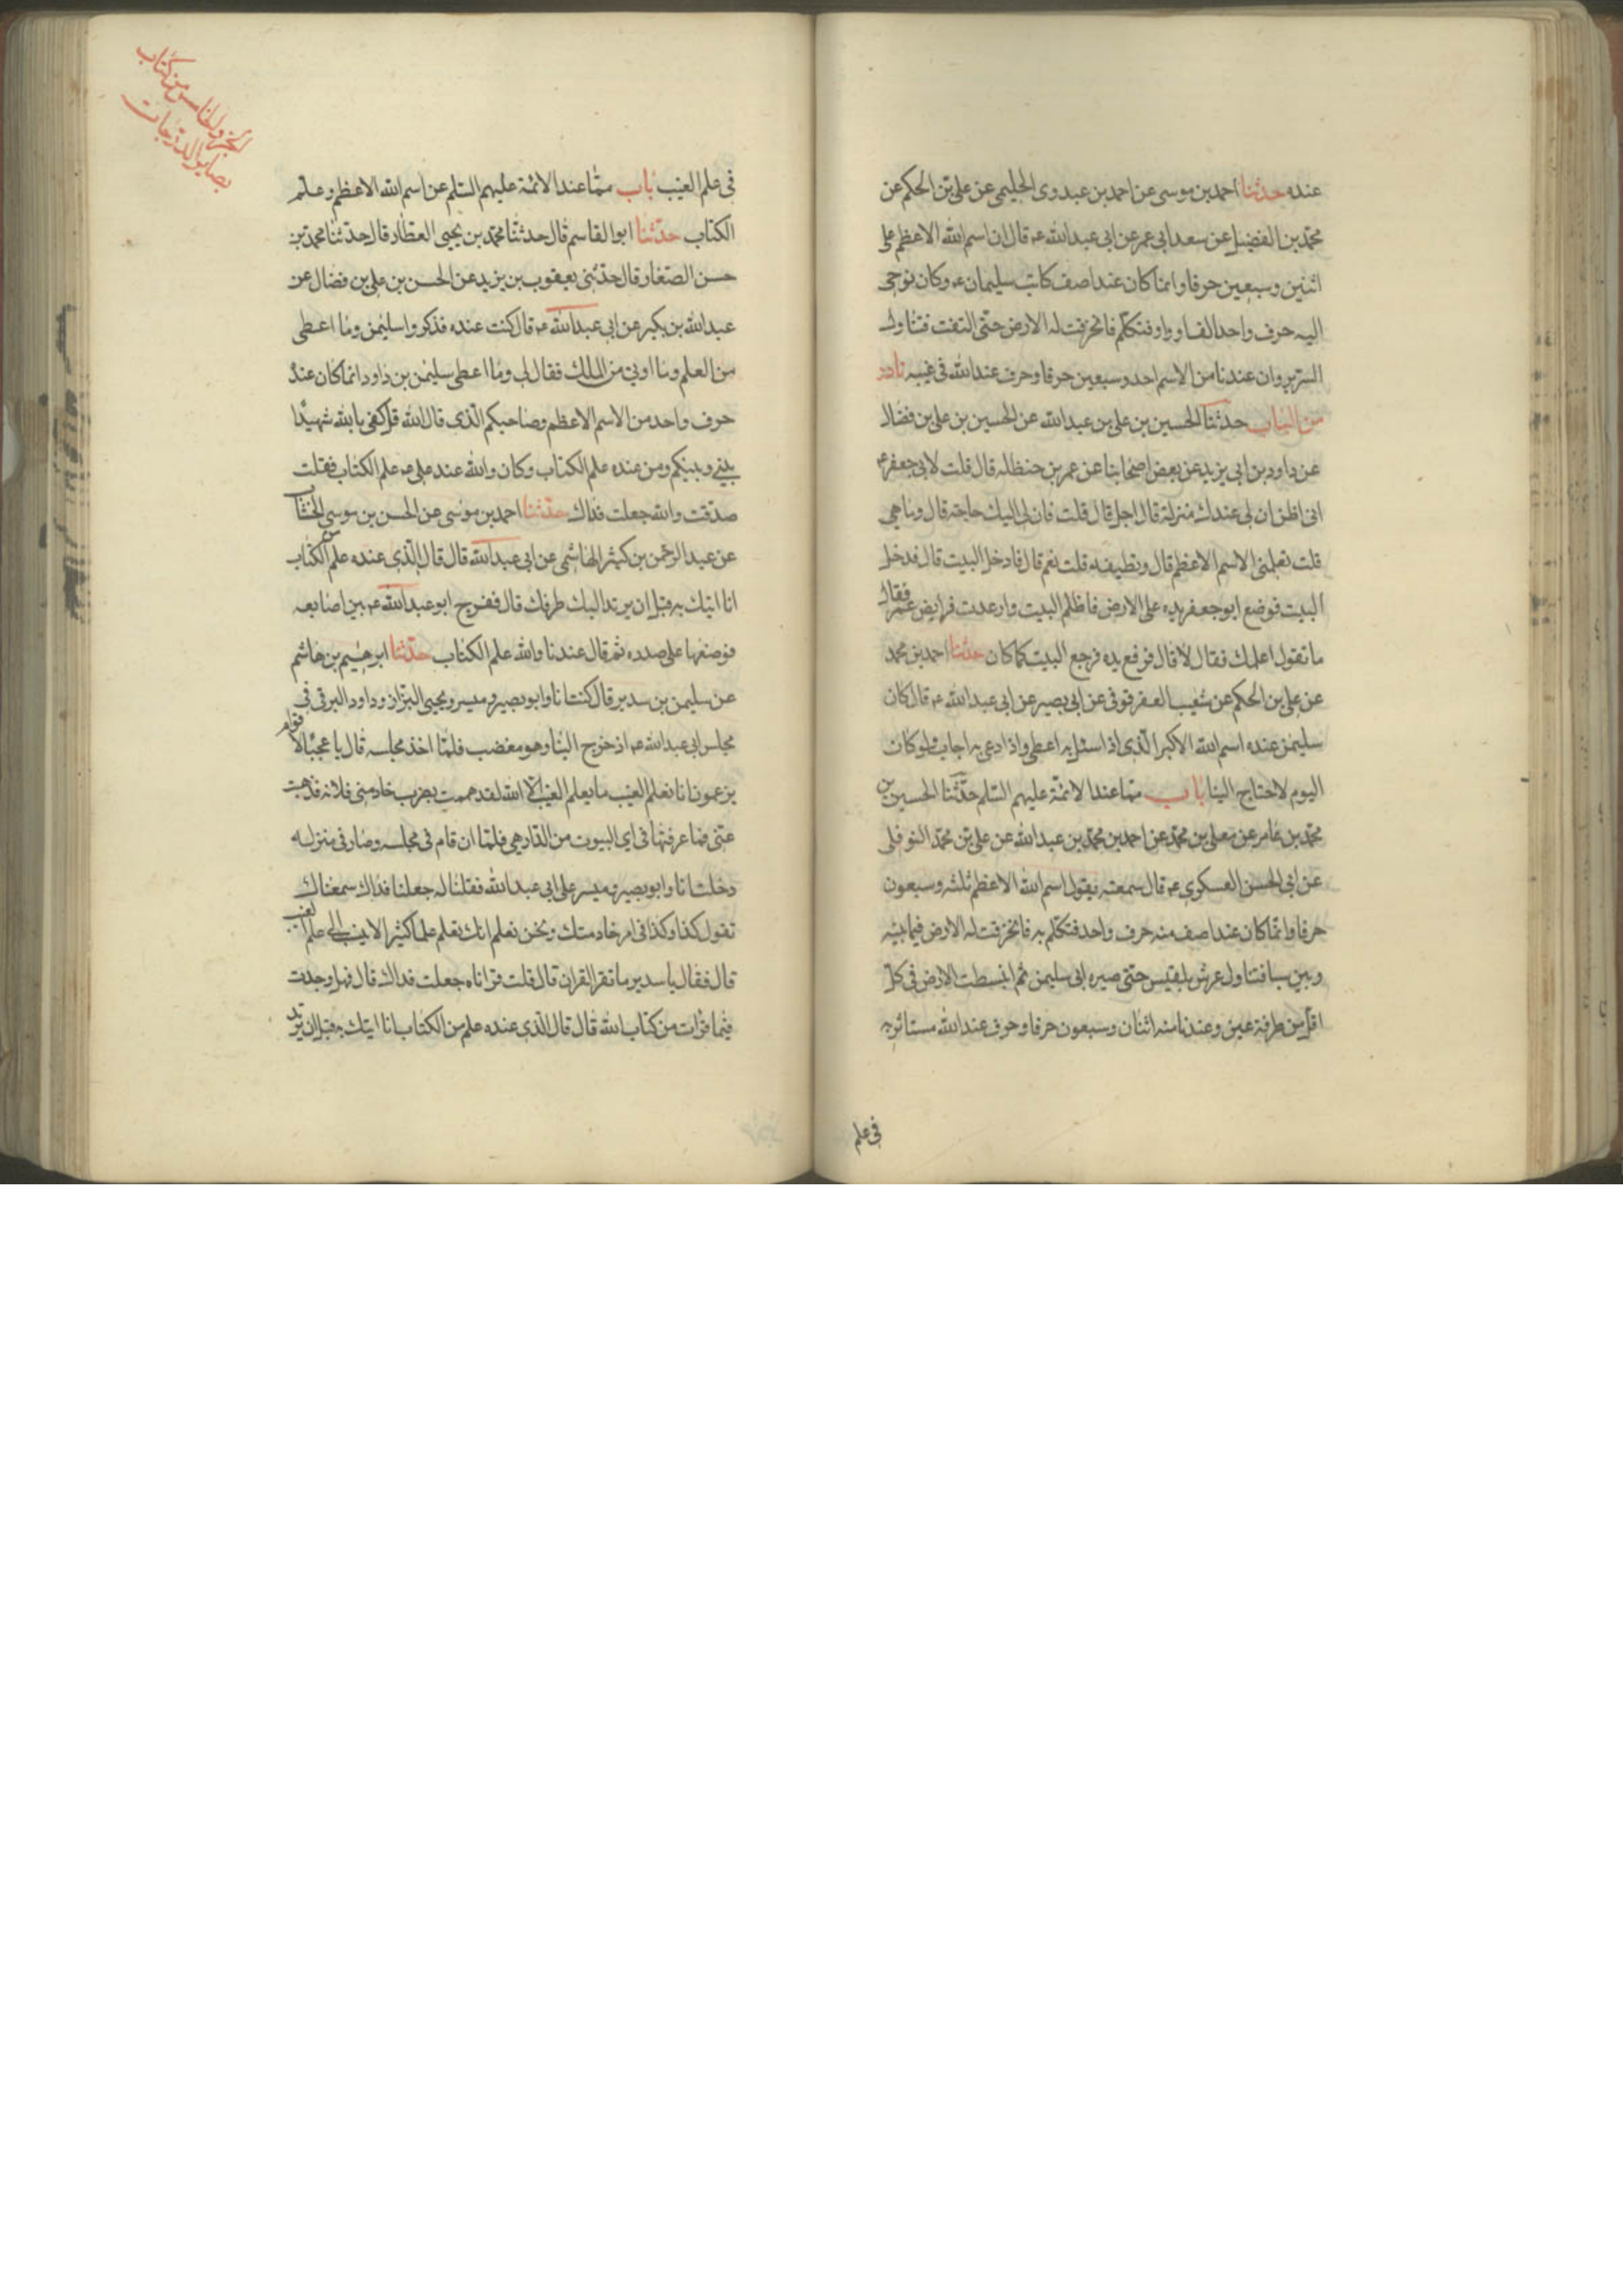 عنده حدثنا احمد بن موسى عن احمد بن عبدوى الخليجى عن على بن الحكم عن
محمد بن الفضيل عن سعد ابى عمر عن ابى عبد الله ع قال ان اسم الله الاعظم على
اثنين وسبعين حرفا وانما كان عند اصف كاتب سليمان ع وكان نوحى
اليه حرف واحد الف او واو فتكلم فانخرقت له الارض حتى التفت فتناول
السرير وان عندنا من الاسم احد وسبعين حرفا وحرف عند الله فى غيبه نادر
من الباب حدثنا الحسين بن على بن عبد الله عن الحسين بن على بن فضال
عن داود بن ابى يزيد عن بعض اصحابنا عن عمر بن حنظله قال قلت لابى جعفر ع
انى اظن ان لى عندك منزلة قال اجل قال قلت فان لى اليك حاجة قال وما هى
قلت تعلمنى الاسم الاعظم قال وتطيقه قلت نعم قال فادخل البيت قال فدخل
البيت فوضع ابو جعفر يده على الارض فاظلم البيت وارعدت فرايض عمر فقال
ما تقول اعلمك فقال لا قال فرفع يده فرجع البيت كما كان حدثنا احمد بن محمد
عن على بن الحكم عن شعيب العقرقوفى عن ابى بصير عن ابى عبد الله ع قال كان
سليمن عنده اسم الله الاكبر الذى اذا سئل به اعطى واذا دعى به اجاب ولو كان
اليوم لاحتاج الينا باب مما عند الائمة عليهم السلم حدثنا الحسين بن
محمد بن عامر عن معلى بن محمد عن احمد بن محمد بن عبد الله عن على بن محمد النوفلى
عن ابى الحسن العسكرى ع قال سمعته يقول اسم الله الاعظم ثلثه وسبعون
حرفا وانما كان عند اصف منه حرف واحد فتكلم به فانخرقت له الارض فيما بينه
وبين سبا فتناول عرش بلقيس حتى صيره الى سليمن ثم انبسطت الارض فى كل
اقل من طرفة عين وعندنا منه اثنان وسبعون حرفا وحرف عند الله مستاثر به
فى علم
الجزو الخامس من كتاب
بصاير الدرجات
فى علم الغيب باب مما عند الائمة عليهم السلم عن اسم الله الاعظم وعلم
الكتاب حدثنا ابو القاسم قال حدثنا محمد بن يحيى العطار قال حدثنا محمد بن
حسن الصفار قال حدثنى يعقوب بن يزيد عن الحسن بن على بن فضال عن
عبد الله بن بكير عن ابى عبد الله ع قال كنت عنده فذكروا سليمن وما اعطى
من العلم وما اوتى من الملك فقال لى وما اعطى سليمن بن داود انما كان عنده
حرف واحد من الاسم الاعظم وصاحبكم الذى قال الله قل كفى بالله شهيدا
بينى وبينكم ومن عنده علم الكتاب وكان والله عند على ع علم الكتاب فقلت
صدقت والله جعلت فداك حدثنا احمد بن موسى عن الحسن بن موسى الخشاب
عن عبد الرحمن بن كثير الهاشمى عن ابى عبد الله قال قال الذى عنده علم من الكتاب
انا اتيك به قبل ان يرتد اليك طرفك قال ففرج ابو عبد الله ع بين اصابعه
فوضعها على صدره ثم قال عندنا والله علم الكتاب حدثنا ابرهيم بن هاشم
عن سليمن بن سدير قال كنت انا وابو بصير وميسر ويحيى البزاز وداود البرقى فى
مجلس ابى عبد الله ع اذ خرج الينا وهو مغضب فلما اخذ مجلسه قال يا عجبا لاقوام
يزعمون انا نعلم الغيب ما يعلم الغيب الا الله لقد هممت بضرب خادمتى فلانة فذهبت
عنى فما عرفتها فى اى البيوت من الدار هى فلما ان قام فى مجلسه وصار فى منزله
دخلت انا وابو بصير وميسر على ابى عبد الله فقلنا له جعلنا فداك سمعناك
تقول كذا وكذا فى امر خادمتك ونحن نعلم انك تعلم علما كثيرا لا ينسب الى علم الغيب
قال فقال يا سدير ما تقرا القران قال قلت قراناه جعلت فداك قال فهل وجدت
فيما قرات من كتاب الله قال قال الذى عنده علم من الكتاب انا اتيك به قبل ان يرتد